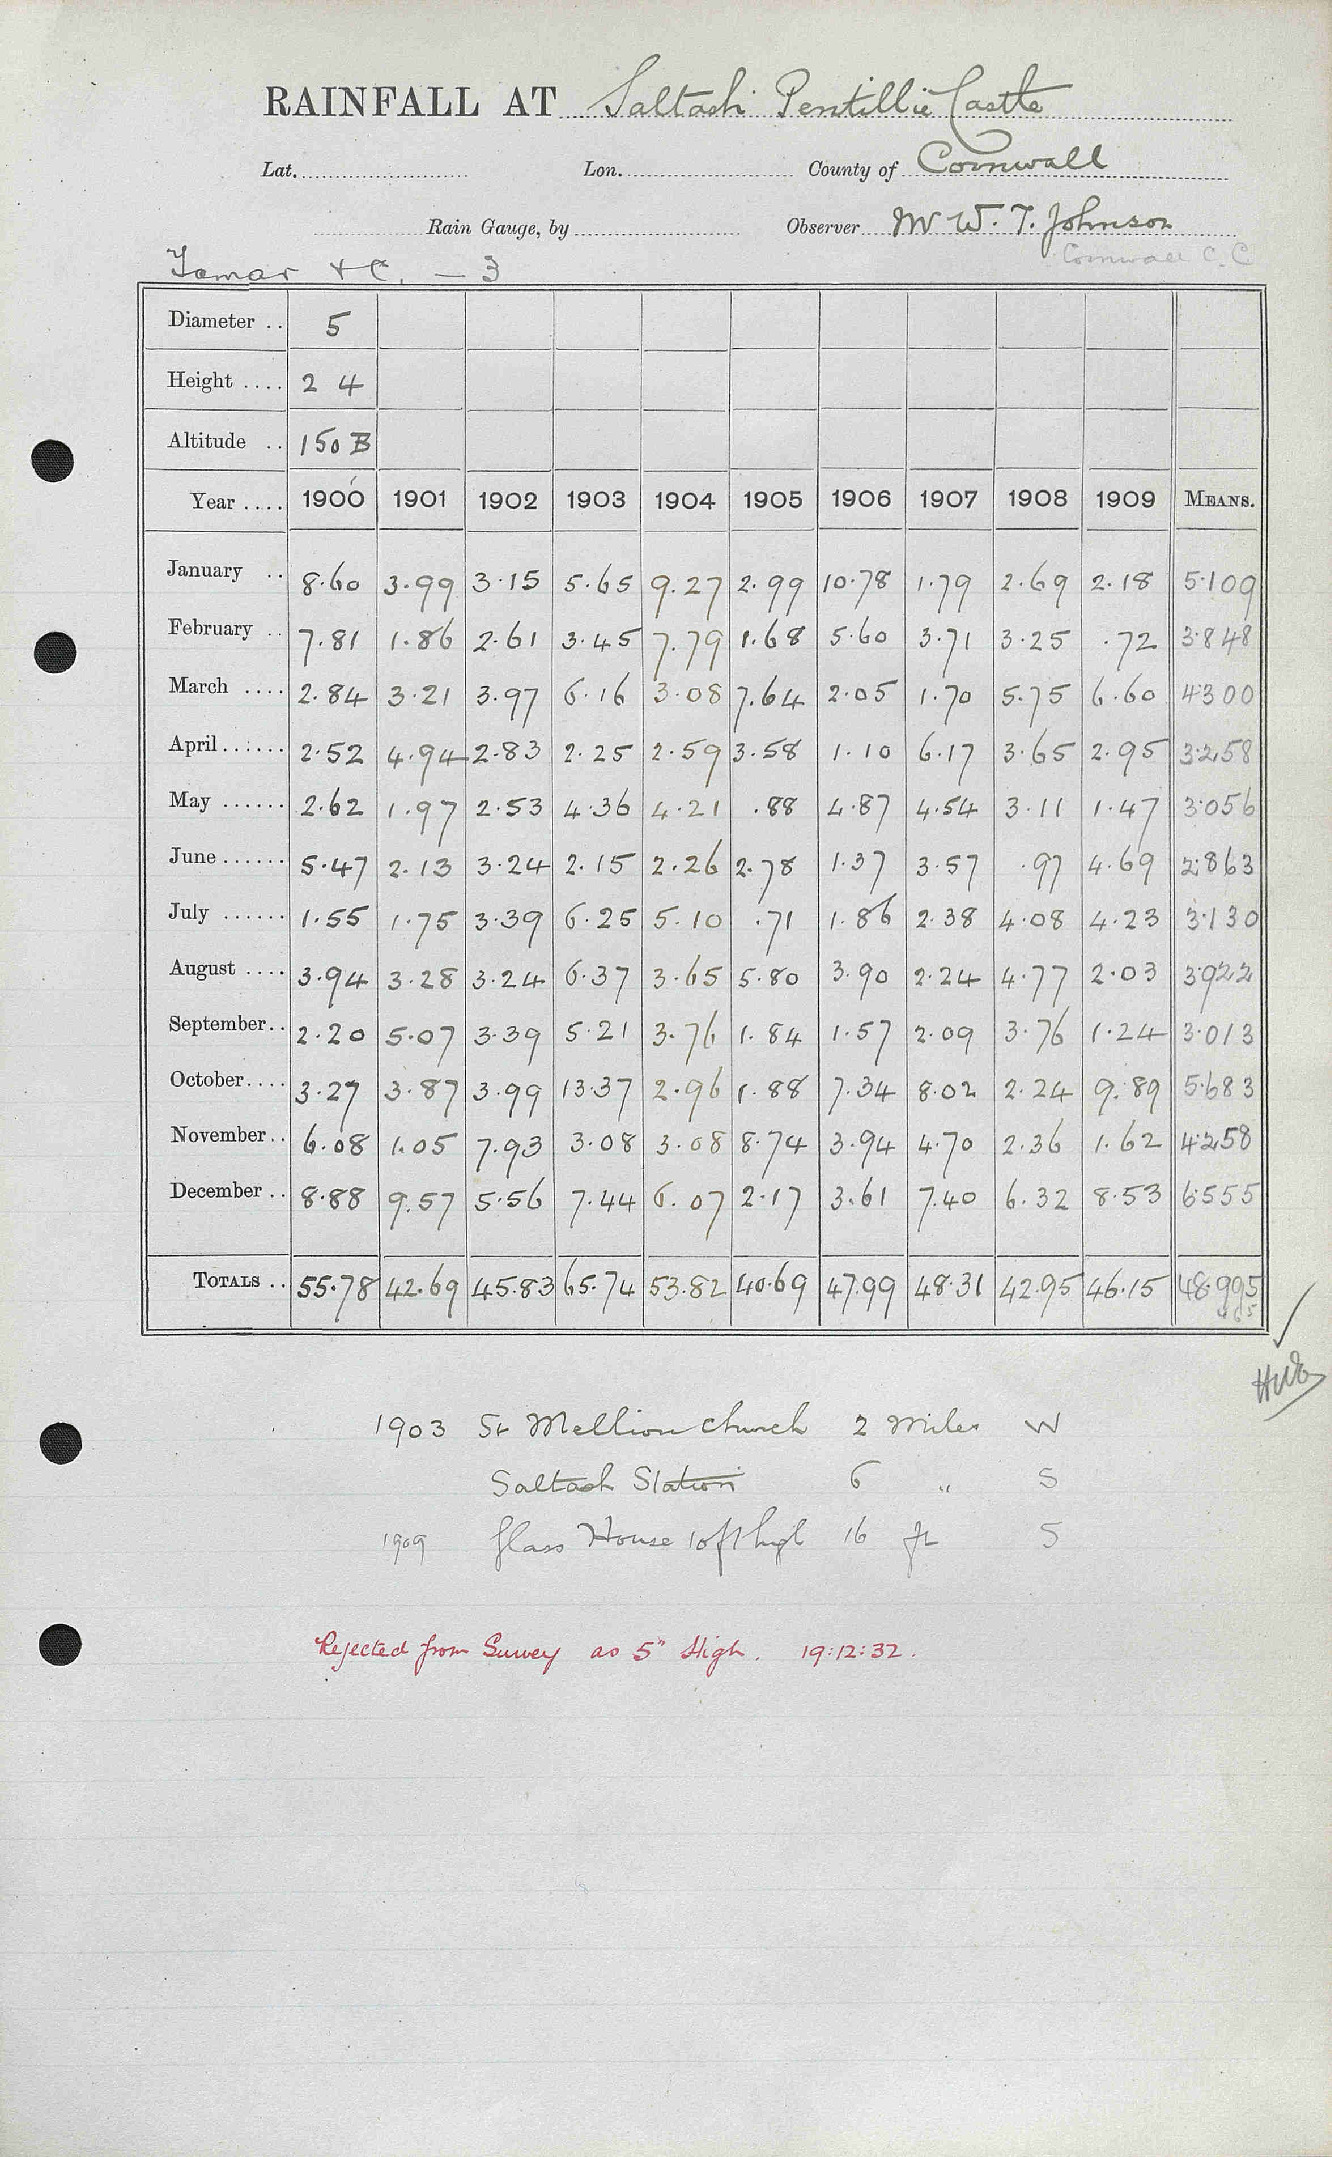 RAINFALL AT Saltash Pentillie Castle
Lat. Lon. County of Cornwall
Rain Gauge, by Observer Mr W. T. Johnson
Tamar &c. — 3 Cornwall C. C
Diameter .. 5
Height .... 2 4
Altitude .. 150 B
Year .... 1900 1901 1902 1903 1904 1905 1906 1907 1908 1909 MEANS.
January .. 8.60 3.99 3.15 5.65 9.27 2.99 10.78 1.79 2.69 2.18 5.109
February .. 7.81 1.86 2.61 3.45 7.79 1.68 5.60 3.71 3.25 .72 3.848
March .... 2.84 3.21 3.97 6.16 3.08 7.64 2.05 1.70 5.75 6.60 4.300
April...... 2.52 4.94 2.83 2.25 2.59 3.58 1.10 6.17 3.65 2.95 3.258
May ...... 2.62 1.97 2.53 4.36 4.21 .88 4.87 4.54 3.11 1.47 3.056
June...... 5.47 2.13 3.24 2.15 2.26 2.78 1.37 3.57 .97 4.69 2.863
July ...... 1.55 1.75 3.39 6.25 5.10 .71 1.86 2.38 4.08 4.23 3.130
August .... 3.94 3.28 3.24 6.37 3.65 5.80 3.90 2.24 4.77 2.03 3.922
September.. 2.20 5.07 3.39 5.21 3.76 1.84 1.57 2.09 3.76 1.24 3.013
October.... 3.27 3.87 3.99 13.37 2.96 1.88 7.34 8.02 2.24 9.89 5.683
November.. 6.08 1.05 7.93 3.08 3.08 8.74 3.94 4.70 2.36 1.62 4.258
December .. 8.88 9.57 5.56 7.44 6.07 2.17 3.61 7.40 6.32 8.53 6.555
TOTALS .. 55.78 42.69 45.83 65.74 53.82 40.69 47.99 48.31 42.95 46.15 48.995
1903 St Mellion Church 2 Miles W
Saltash Station 6 " S
1909 Glass House 10ft high 16 ft S
Rejected from Survey as 5" High. 19:12:32.